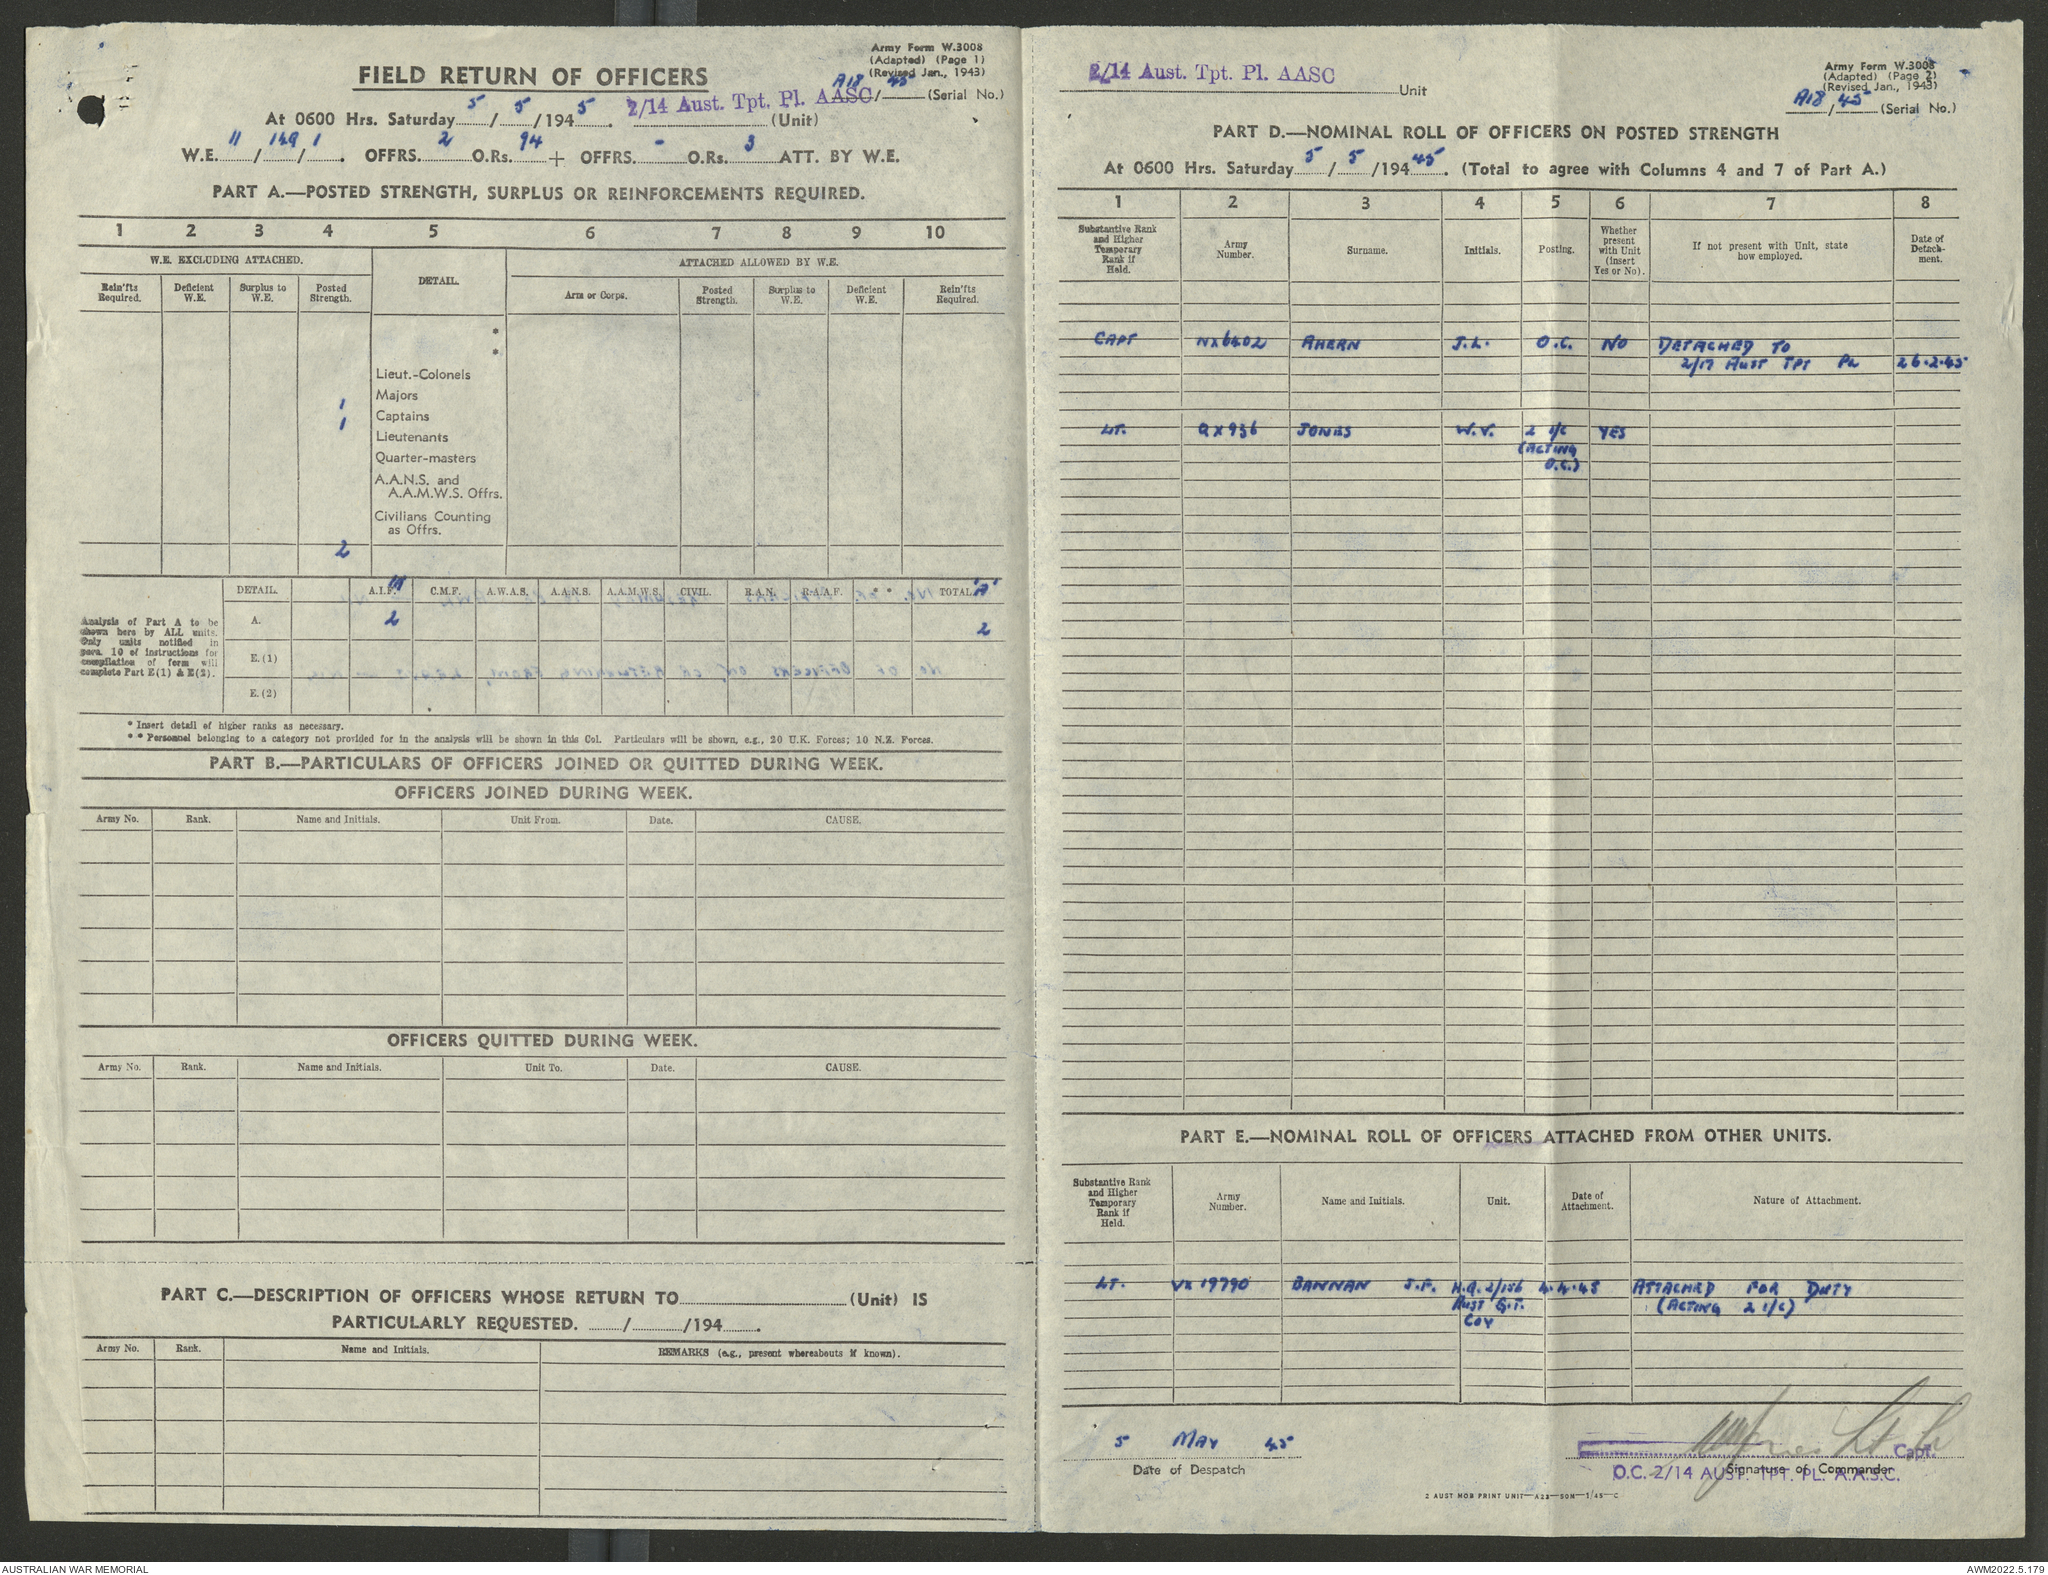 Army Form W.3008
(Adapted) (Page 1)
(Revised Jan., 1943)
FIELD RETURN OF OFFICERS
A18/45 (Serial No.)
At 0600 Hrs. Saturday 5/5/1945. 2/14 Aust. Tpt. Pl. AASC (Unit)
W.E. 11/149/1. OFFRS. 2 O.Rs. 94 + OFFRS. - O.Rs. 3 ATT. BY W.E.
PART A.—POSTED STRENGTH, SURPLUS OR REINFORCEMENTS REQUIRED.
1 2 3 4 5 6 7 8 9 10
W.E. EXCLUDING ATTACHED. DETAIL. ATTACHED ALLOWED BY W.E.
Rein'fts Required. Deficient W.E. Surplus to W.E. Posted Strength. Arm or Corps. Posted Strength. Surplus to W.E. Deficient W.E. Rein'fts Required.
*
*
Lieut.-Colonels
Majors
1 Captains
1 Lieutenants
Quarter-masters
A.A.N.S. and
A.A.M.W.S. Offrs.
Civilians Counting
as Offrs.
2
DETAIL. A.I.F. C.M.F. A.W.A.S. A.A.N.S. A.A.M.W.S. CIVIL. R.A.N. R.A.A.F. * * TOTAL "A"
A. 2 2
E.(1)
E.(2)
Analysis of Part A to be
shown here by ALL units.
Only units notified in
para. 10 of instructions for
compilation of form will
complete Part E(1) & E(2).
* Insert detail of higher ranks as necessary.
* * Personnel belonging to a category not provided for in the analysis will be shown in this Col. Particulars will be shown, e.g., 20 U.K. Forces; 10 N.Z. Forces.
PART B.—PARTICULARS OF OFFICERS JOINED OR QUITTED DURING WEEK.
OFFICERS JOINED DURING WEEK.
Army No. Rank. Name and Initials. Unit From. Date. CAUSE.
OFFICERS QUITTED DURING WEEK.
Army No. Rank. Name and Initials. Unit To. Date. CAUSE.
PART C.—DESCRIPTION OF OFFICERS WHOSE RETURN TO (Unit) IS
PARTICULARLY REQUESTED. / /194 .
Army No. Rank. Name and Initials. REMARKS (e.g., present whereabouts if known).
2/14 Aust. Tpt. Pl. AASC Unit
Army Form W.3008
(Adapted) (Page 2)
(Revised Jan., 1943)
A18/45 (Serial No.)
PART D.—NOMINAL ROLL OF OFFICERS ON POSTED STRENGTH
At 0600 Hrs. Saturday 5/5/194 45. (Total to agree with Columns 4 and 7 of Part A.)
1 2 3 4 5 6 7 8
Substantive Rank and Higher Temporary Rank if Held. Army Number. Surname. Initials. Posting. Whether present with Unit (insert Yes or No). If not present with Unit, state how employed. Date of Detachment.
CAPT NX6402 AHERN J.L. O.C. NO DETACHED TO
2/17 AUST TPT PL 26.2.45
LT. QX936 JONES W.V. 2 I/C YES
(ACTING
O.C.)
PART E.—NOMINAL ROLL OF OFFICERS ATTACHED FROM OTHER UNITS.
Substantive Rank and Higher Temporary Rank if Held. Army Number. Name and Initials. Unit. Date of Attachment. Nature of Attachment.
LT. VX19790 BANNAN J.F. H.Q. 2/156 4.4.45 ATTACHED FOR DUTY
AUST G.T. (ACTING 2 I/C)
COY
5 MAY 45
Date of Despatch
Capt.
Signature of Commander
O.C. 2/14 AUST. TPT. PL. A.A.S.C.
2 AUST MOB PRINT UNIT—A23—50M—1/45—C
AUSTRALIAN WAR MEMORIAL
AWM2022.5.179